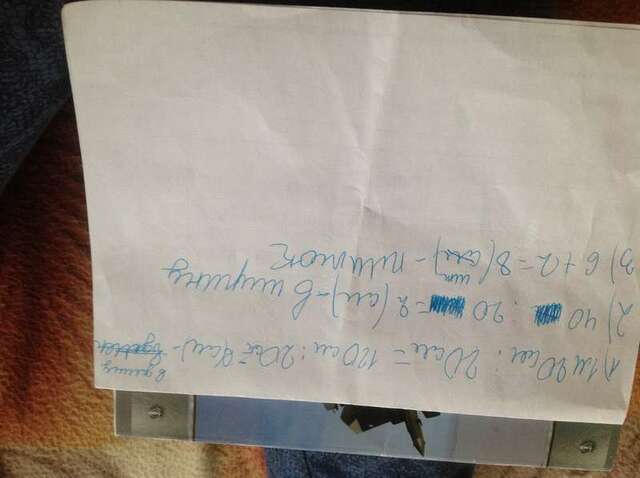 в длину
1) 1м 20см : 20см = 120см : 20см = (см) -
2) 40 : 20 = 2 (см) - в ширину
шт
3) 6 + 2 = 8 (см) - плиток